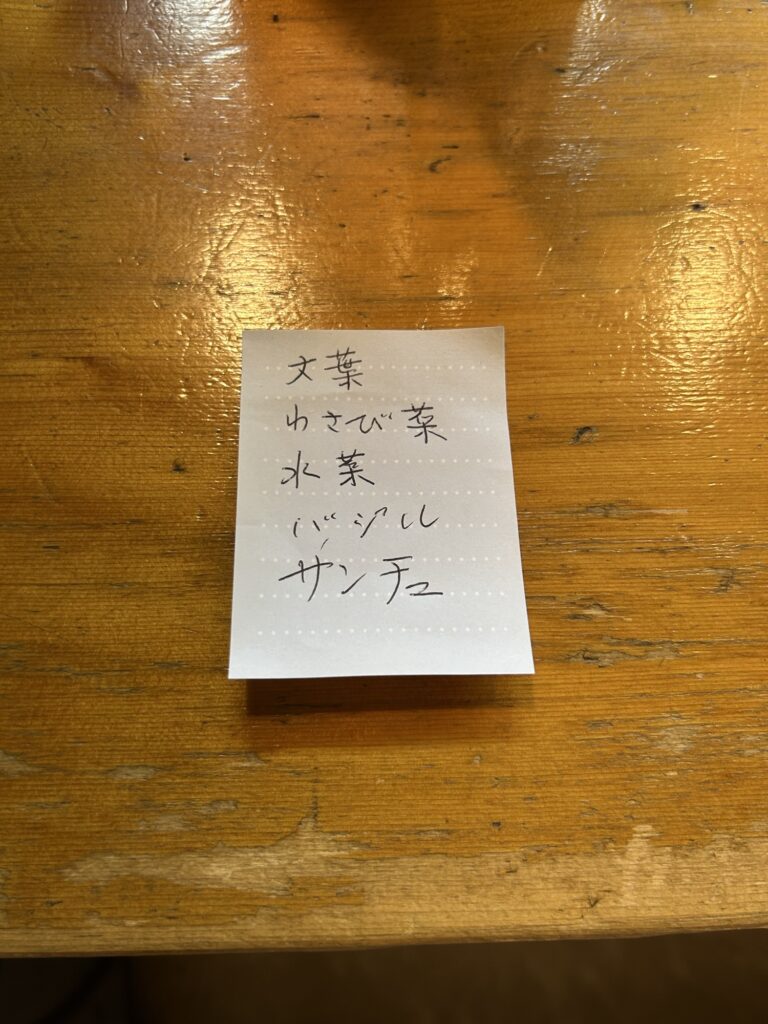 大葉
わさび菜
水菜
バジル
サンチュ